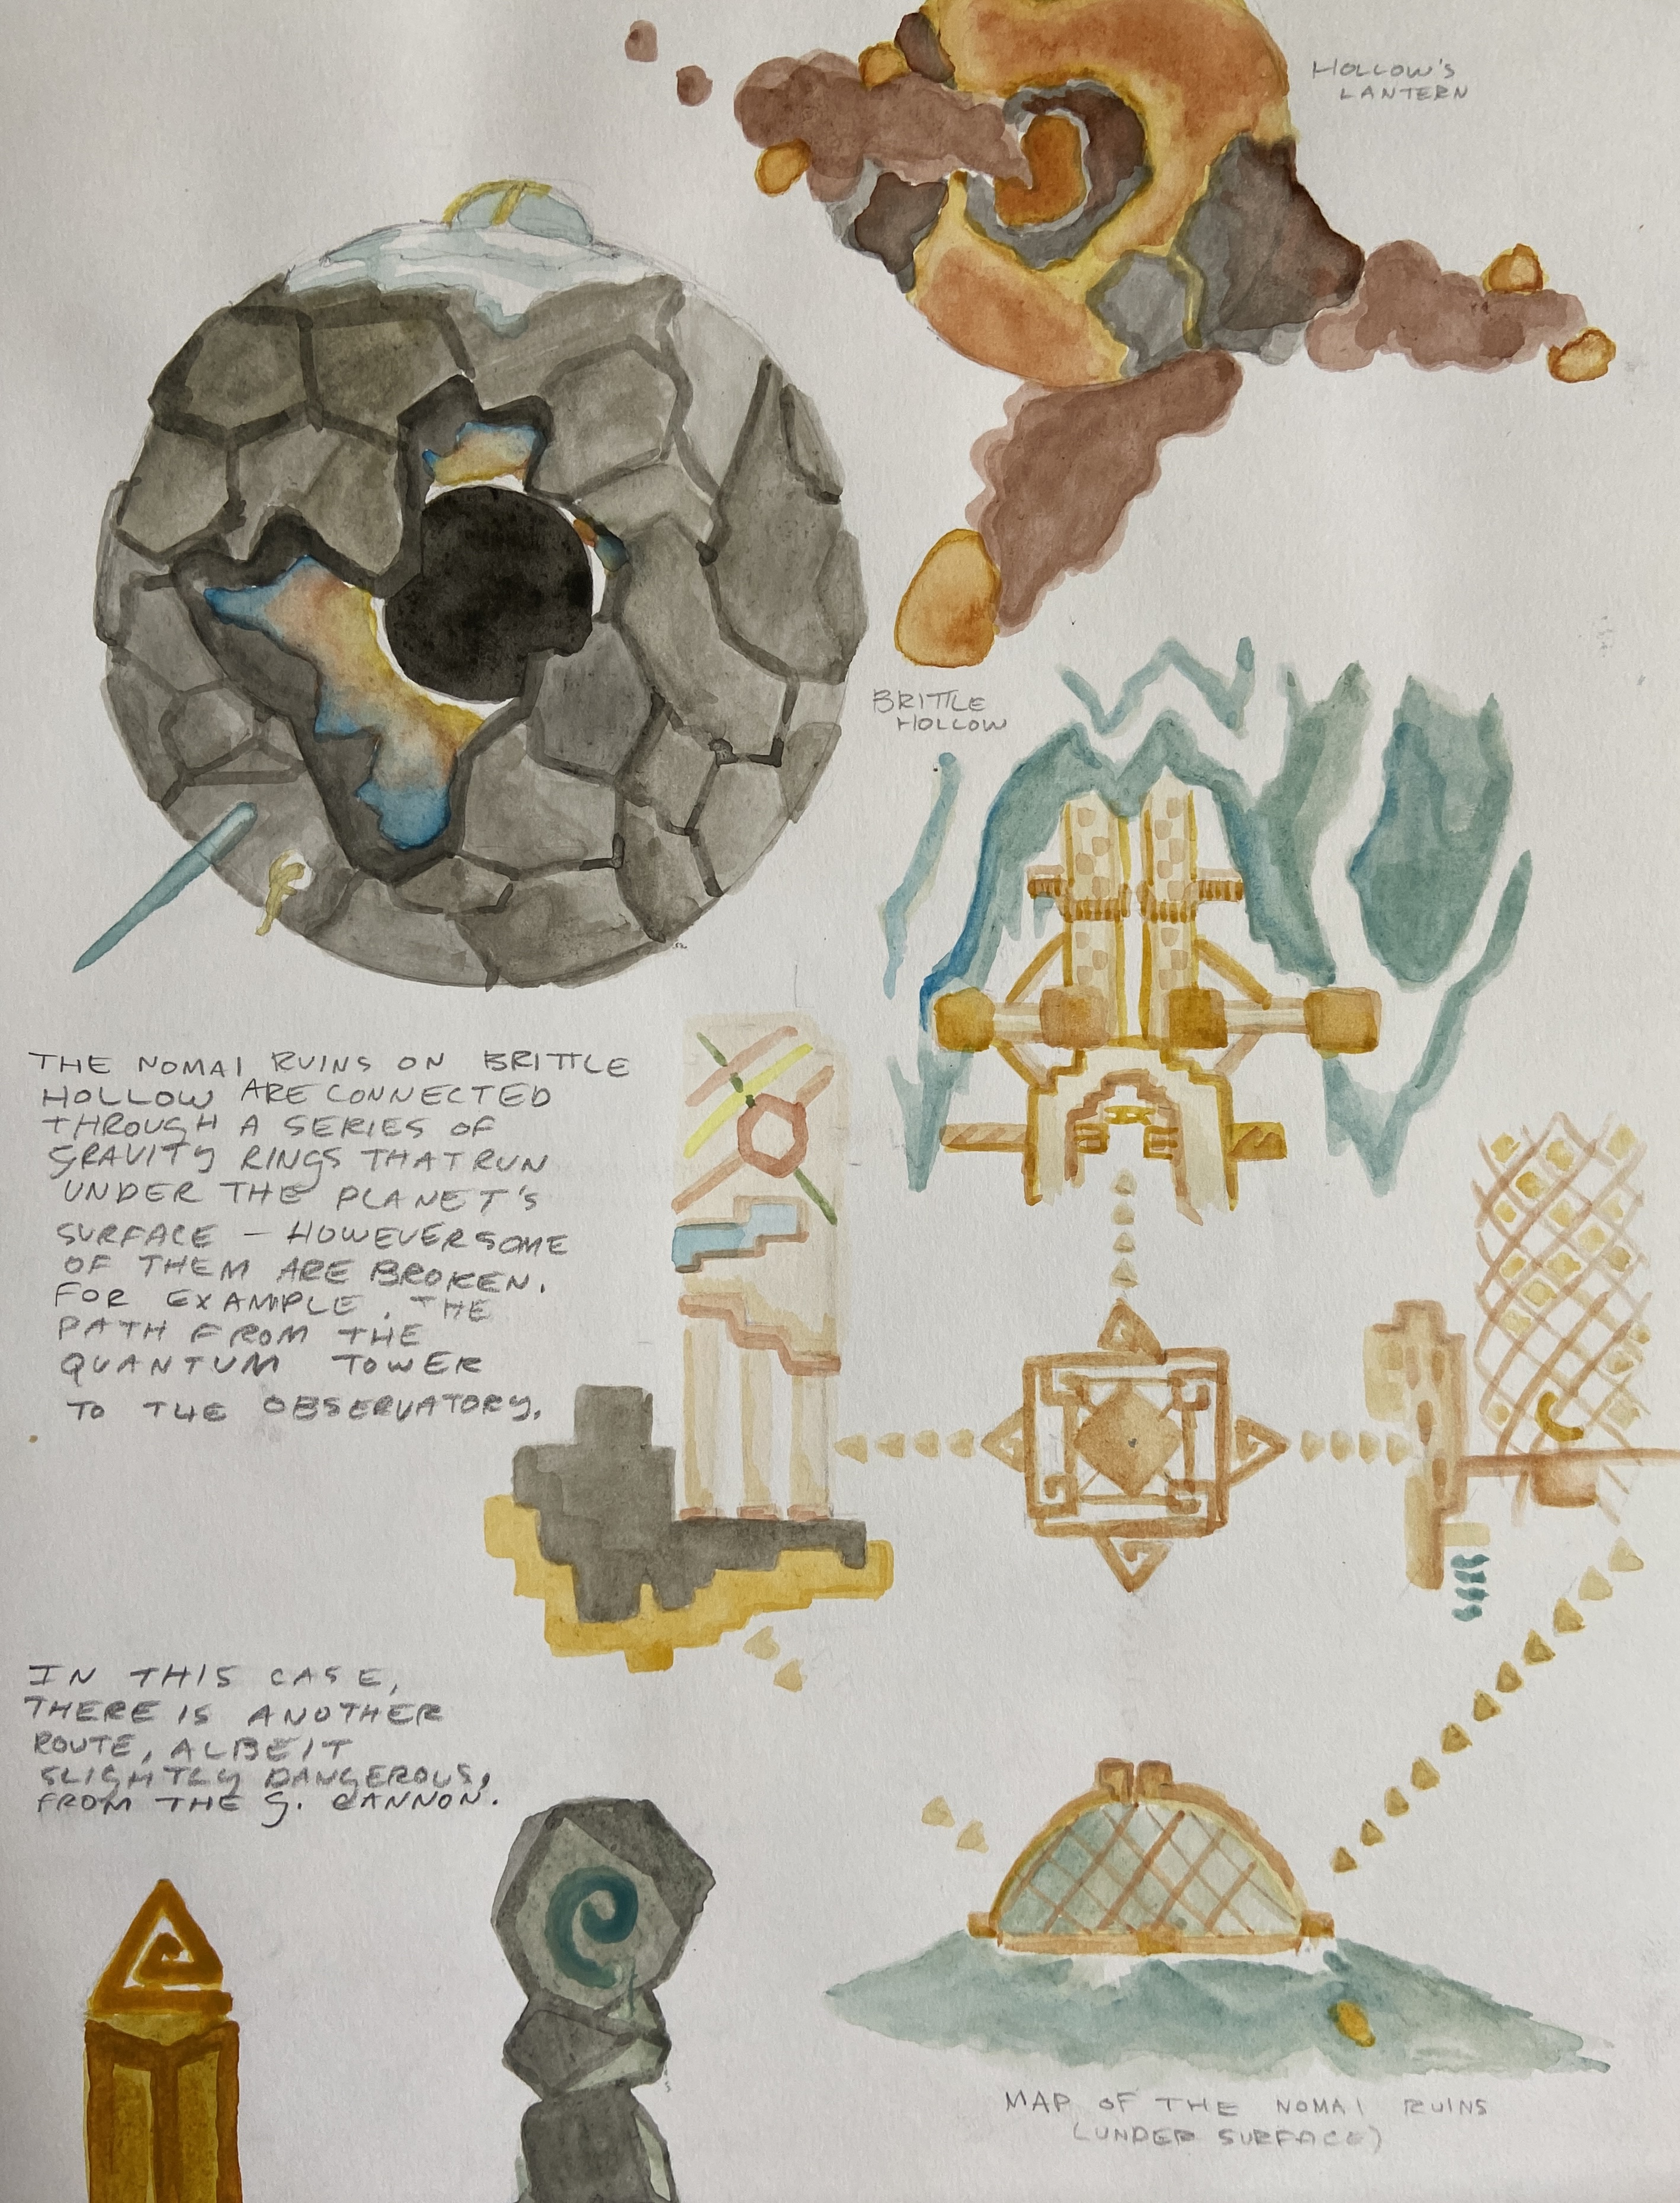 HOLLOW'S
LANTERN
BRITTLE
HOLLOW
THE NOMAI RUINS ON BRITTLE
HOLLOW ARE CONNECTED
THROUGH A SERIES OF
GRAVITY RINGS THAT RUN
UNDER THE PLANET'S
SURFACE – HOWEVER SOME
OF THEM ARE BROKEN.
FOR EXAMPLE, THE
PATH FROM THE
QUANTUM TOWER
TO THE OBSERVATORY.
IN THIS CASE,
THERE IS ANOTHER
ROUTE, ALBEIT
SLIGHTLY DANGEROUS,
FROM THE G. CANNON.
MAP OF THE NOMAI RUINS
(UNDER SURFACE)